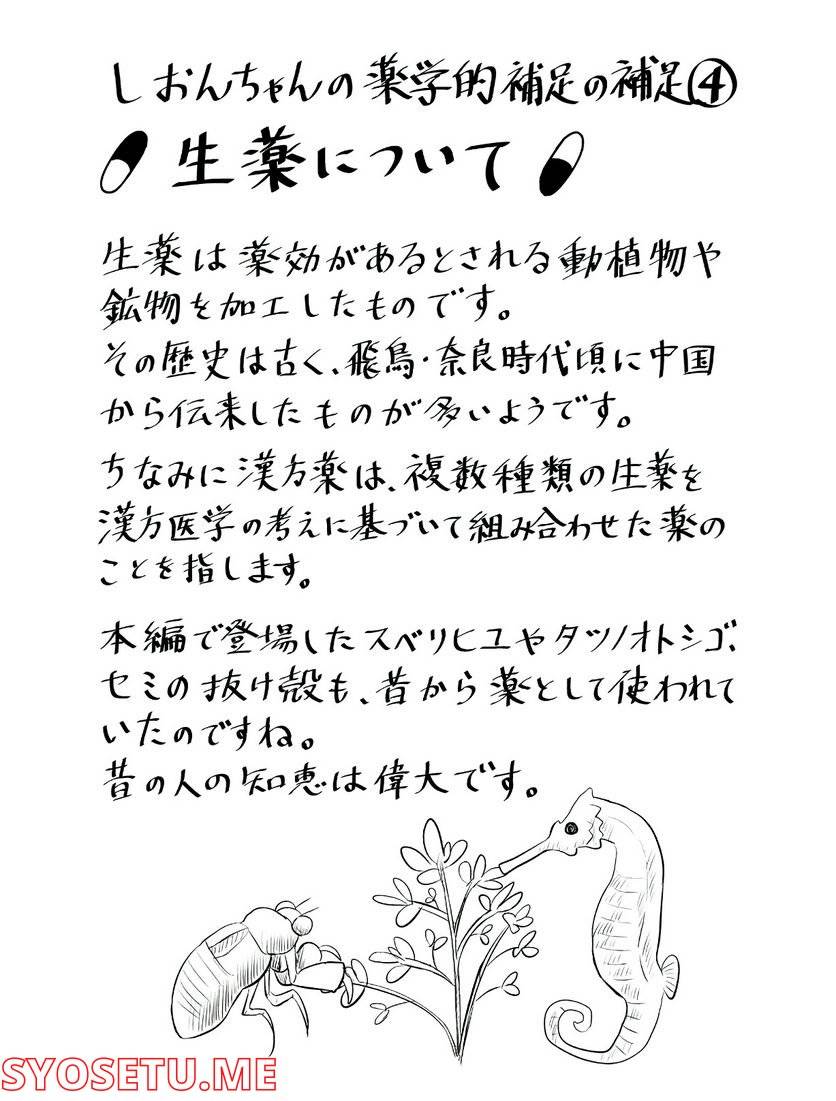 しおんちゃんの薬学的補足の補足④
生薬について
生薬は薬効があるとされる動植物や
鉱物を加工したものです。
その歴史は古く、飛鳥・奈良時代頃に中国
から伝来したものが多いようです。
ちなみに漢方薬は、複数種類の生薬を
漢方医学の考えに基づいて組み合わせた薬の
ことを指します。
本編で登場したスベリヒユやタツノオトシゴ、
セミの抜け殻も、昔から薬として使われて
いたのですね。
昔の人の知恵は偉大です。
SYOSETU.ME